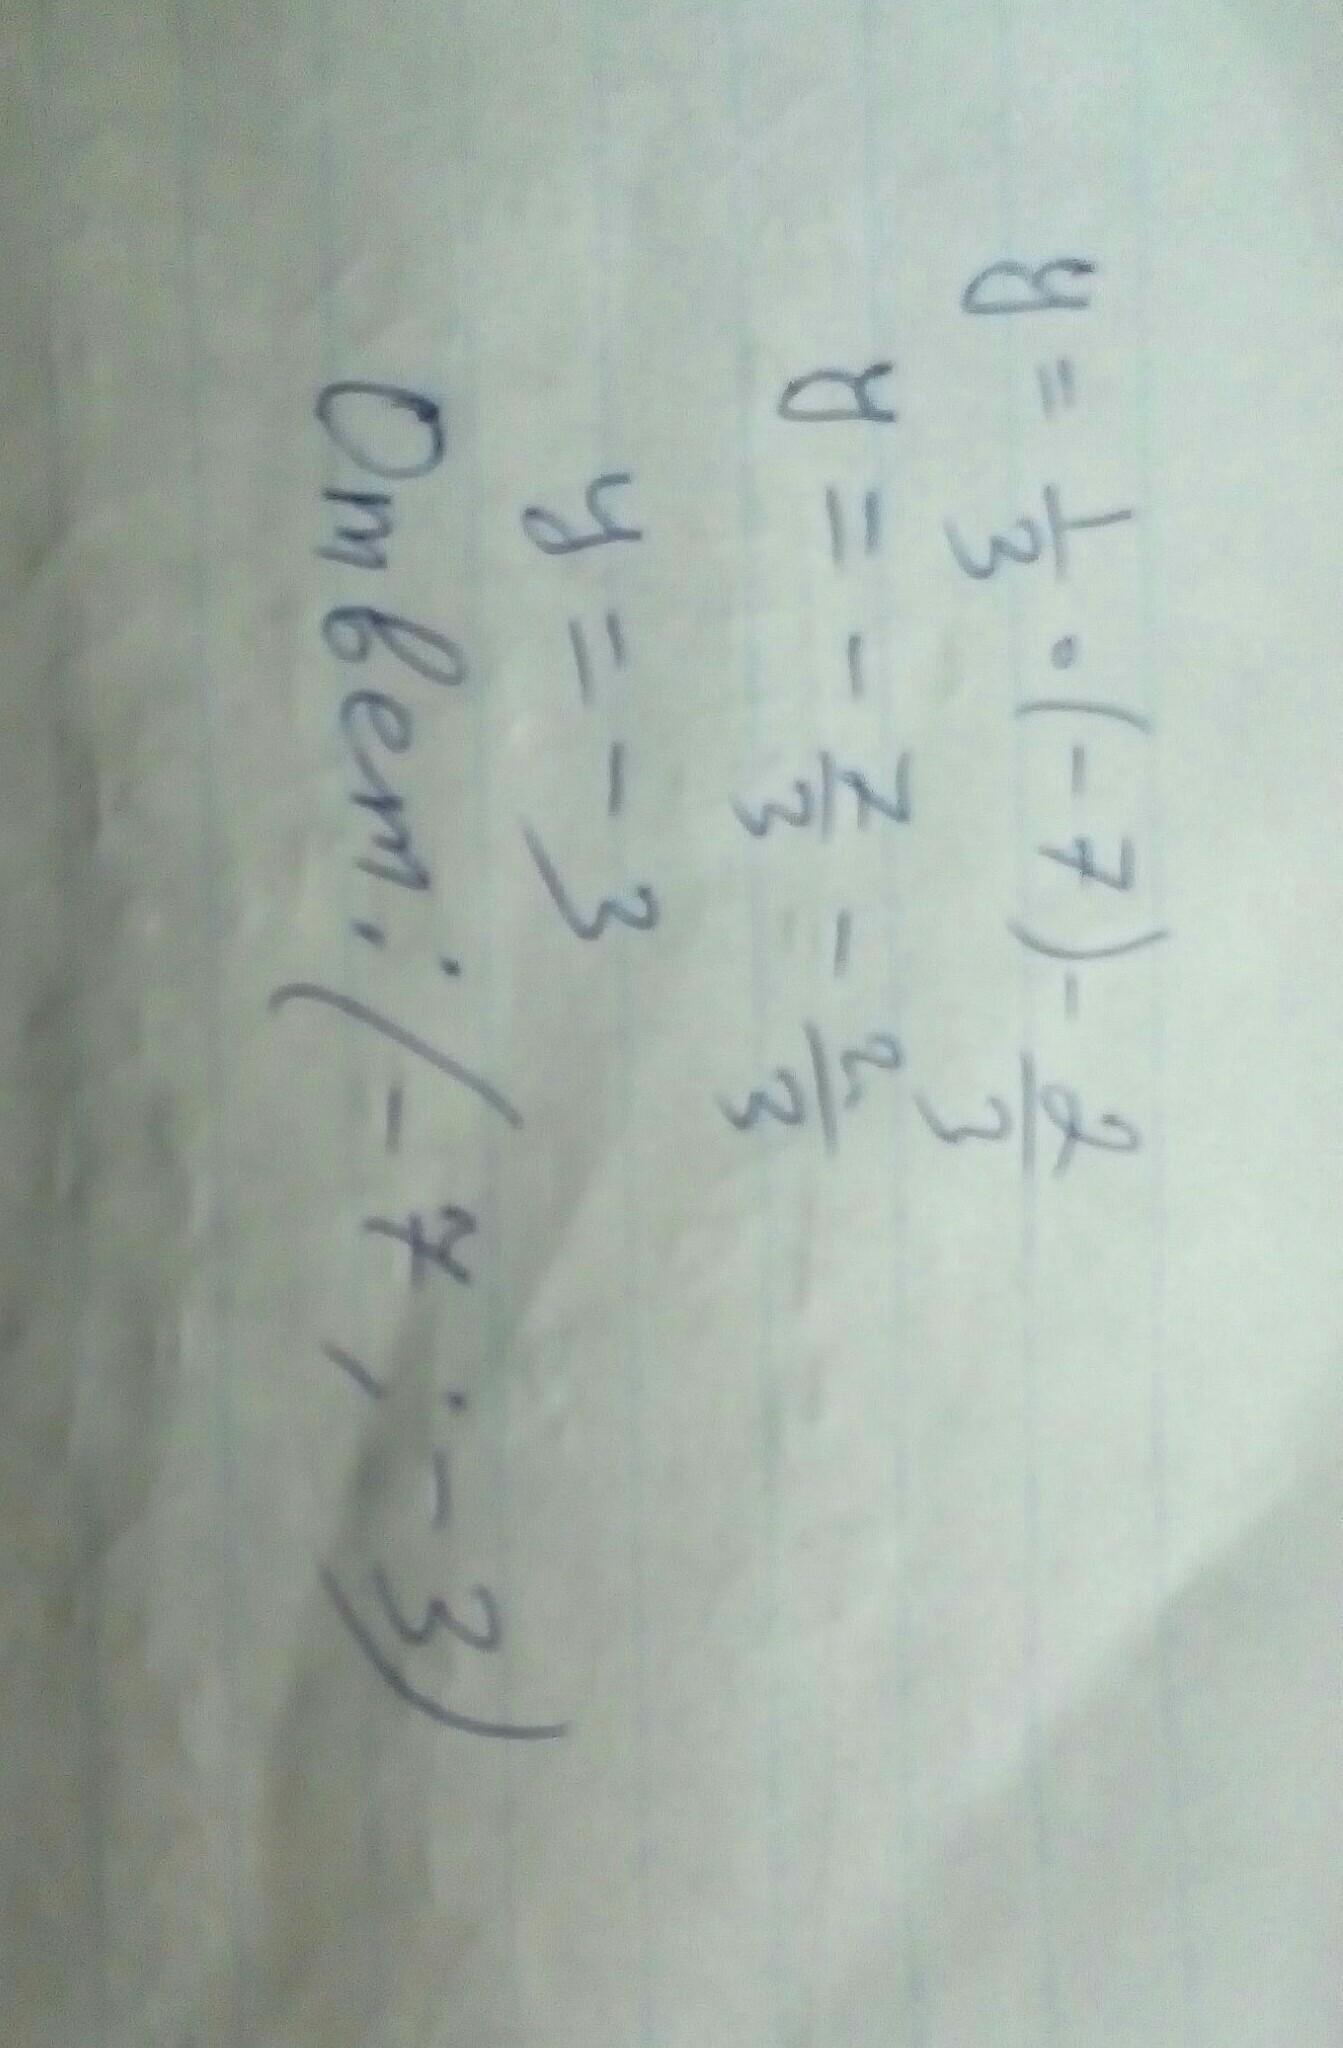 y = 1/3 · (-7) - 2/3
y = - 7/3 - 2/3
y = - 3
Ответ: (-7; -3)